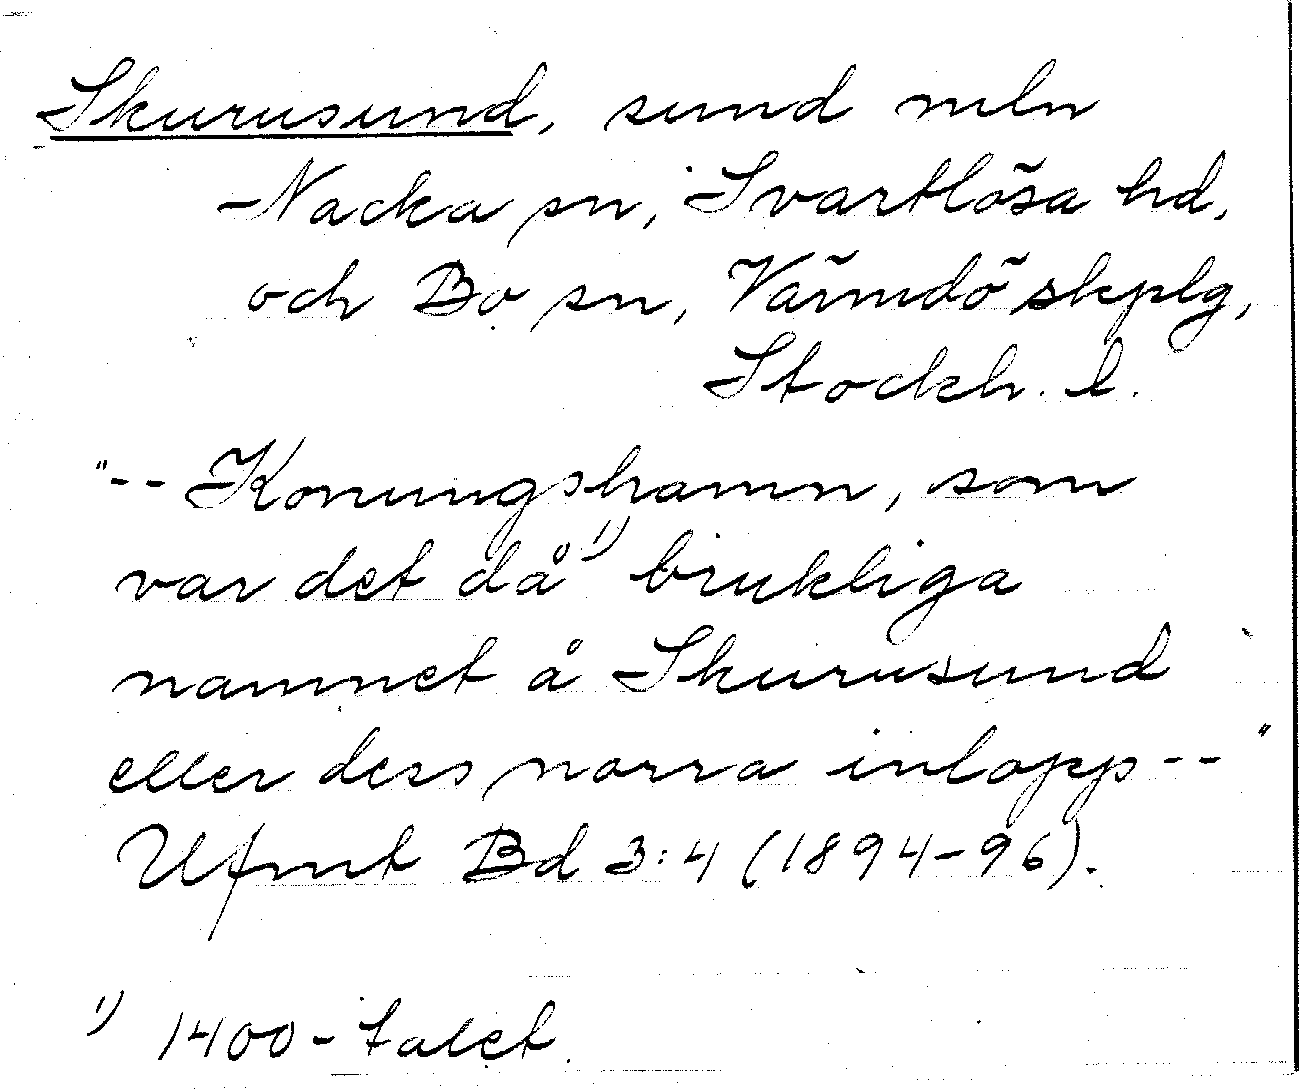 Skurusund, sund mln
Nacka sn, Svartlösa hd,
och Bo sn, Värmdö skplg,
Stockh. l.
"-- Konungshamn, som
var det då¹⁾ brukliga
namnet å Skurusund
eller dess norra inlopp--"
Ufmt Bd 3:4 (1894-96).
¹⁾ 1400-talet.